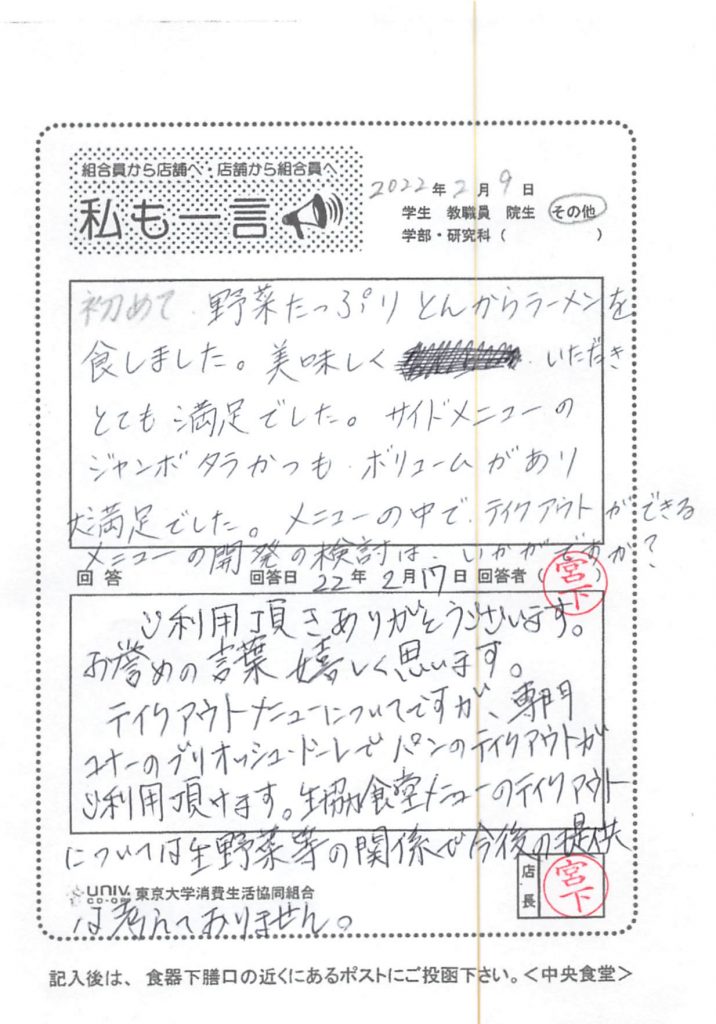 組合員から店舗へ・店舗から組合員へ
私も一言
2022年2月9日
学生 教職員 院生 その他
学部・研究科( )
初めて野菜たっぷりとんからラーメンを
食しました。美味しく いただき
とても満足でした。サイドメニューの
ジャンボタラかつも、ボリュームがあり
大満足でした。メニューの中で、テイクアウトができる
メニューの開発の検討は、いかがですか?
回答 回答日 22年2月17日 回答者(宮下)
ご利用頂きありがとうございます。
お誉めの言葉嬉しく思います。
テイクアウトメニューについてですが、専門
コーナーのブリオッシュ・ドーレでパンのテイクアウトが
ご利用頂けます。生協食堂メニューのテイクアウト
については生野菜等の関係で今後の提供
は考えておりません。
UNIV. CO-OP 東京大学消費生活協同組合
店長 宮下
記入後は、食器下膳口の近くにあるポストにご投函下さい。<中央食堂>